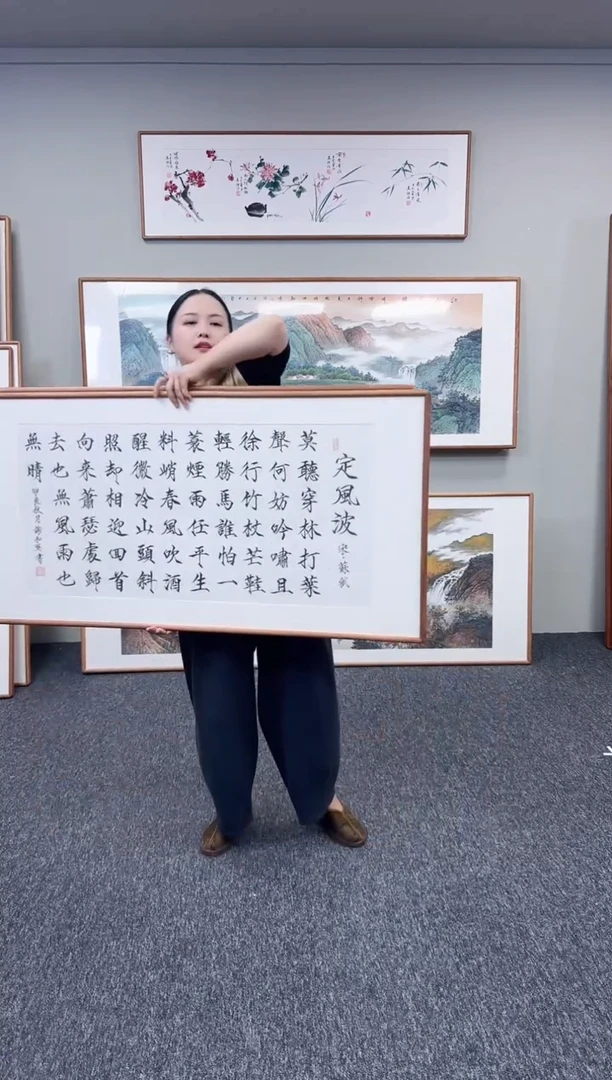 定風波 宋 蘇軾
莫聽穿林打葉
聲何妨吟嘯且
徐行竹杖芒鞋
輕勝馬誰怕一
蓑煙雨任平生
料峭春風吹酒
醒微冷山頭斜
照却相迎回首
向來蕭瑟處歸
去也無風雨也
無晴 甲辰秋月 書